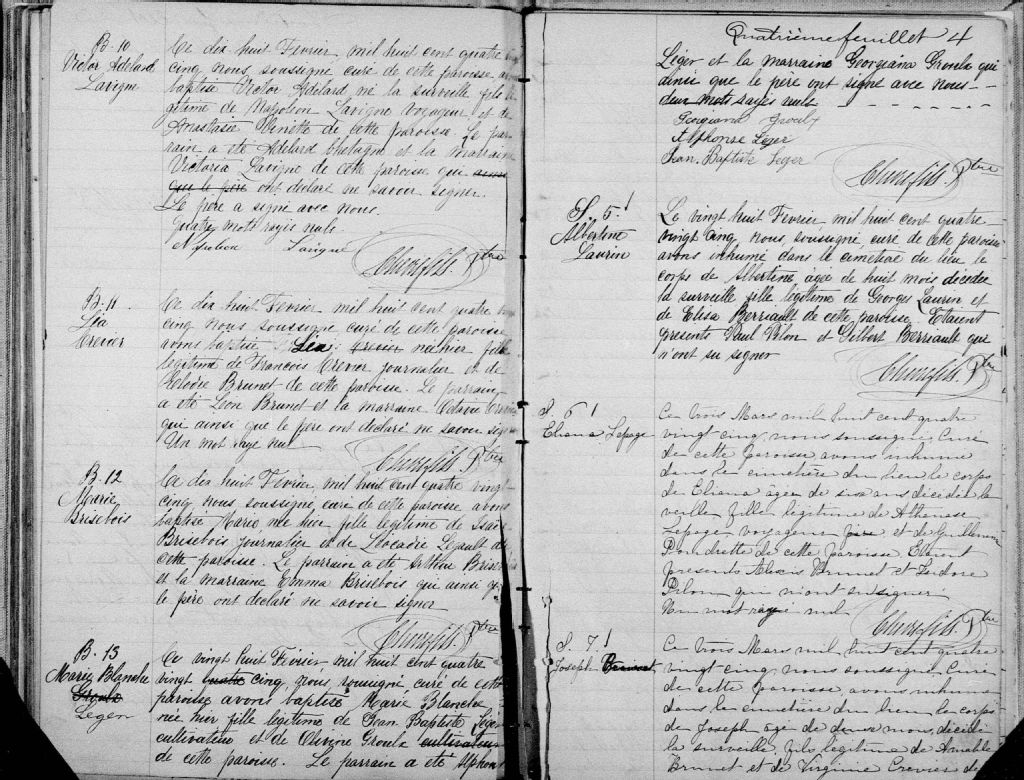 B. 10
Victor Adelard
Lavigne
Ce dix huit Fevrier mil huit cent quatre
cinq nous soussigné curé de cette paroisse
baptisé Victor Adelard né la surveille fils
gitime de Napoleon Lavigne voyageur et de
Anastasie de cette paroisse. Le par-
rain a été Adelard et la marraine
Victoria Lavigne de cette paroisse qui ainsi
que le père ont declaré ne savoir signer.
Le père a signé avec nous.
Quatre mots rayés nuls.
Napoleon Lavigne
Chenefils. Ptre
B. 11
Léa
Crevier
Ce dix huit Fevrier mil huit cent quatre
cinq nous soussigné curé de cette paroisse
avons baptisé Léa Crevier née hier fille
legitime de François Crevier journalier et de
Brunet de cette paroisse. Le parrain
a été Léon Brunet et la marraine Octavie
qui ainsi que le père ont declaré ne savoir
Un mot rayé nul
Chenefils Ptre
B. 12
Marie
Brisebois
Ce dix huit Fevrier mil huit cent quatre vingt
cinq nous soussigné curé de cette paroisse avons
baptisé Marie née hier fille legitime de
Brisebois journalier et de Léocadie Legault de
cette paroisse. Le parrain a été Arthur
et la marraine Emma Brisebois qui ainsi que
le père ont declaré ne savoir signer
Chenefils Ptre
B. 13
Marie Blanche
Groulx
Leger
Ce vingt huit Fevrier mil huit cent quatre
vingt cinq, nous soussigné, curé de cette
paroisse avons baptisé Marie Blanche,
née hier fille legitime de Jean Baptiste Leger
cultivateur et de Olivine Groulx cultivateur
de cette paroisse. Le parrain a été Alphonse
Quatrième feuillet 4
Léger et la marraine Georgeana Groulx qui
ainsi que le père ont signé avec nous -
deux mots rayés nuls
Georgiana Groulx
Alphonse Léger
Jean Baptiste Leger
Chenefils. Ptre
S. 5.
Albertine
Laurin
Le vingt huit Fevrier mil huit cent quatre-
vingt cinq, nous soussigné curé de cette paroisse
avons inhumé dans le cimetière du lieu le
corps de Albertine agée de huit mois decedée
la surveille fille legitime de Georges Laurin et
de Elisa Berriault de cette paroisse. Etaient
presents Paul Pilon et Gilbert Berriault qui
n'ont su signer
Chenefils. Ptre
S. 6
Eliana Lepage
Ce trois Mars mil huit cent quatre
vingt cinq, nous soussigné, Curé
de cette Paroisse avons inhumé
dans le cimetière du lieu le corps
de Eliana âgée de six ans décédée la
veille fille legitime de Athanase
Lepage voyageur et de
de cette Paroisse Etaient
presents Alexis Brunet et Isidore
Pilon qui n'ont su signer
Un mot rayé nul
Chenefils. Ptre
S. 7
Joseph Brunet
Ce trois Mars mil huit cent quatre
vingt cinq, nous soussigné, Curé
de cette Paroisse, avons inhumé
dans le cimetière du lieu le corps
de Joseph âgé de deux mois, décédé
la surveille, fils legitime de Aimable
Brunet et de Virginie Crevier de